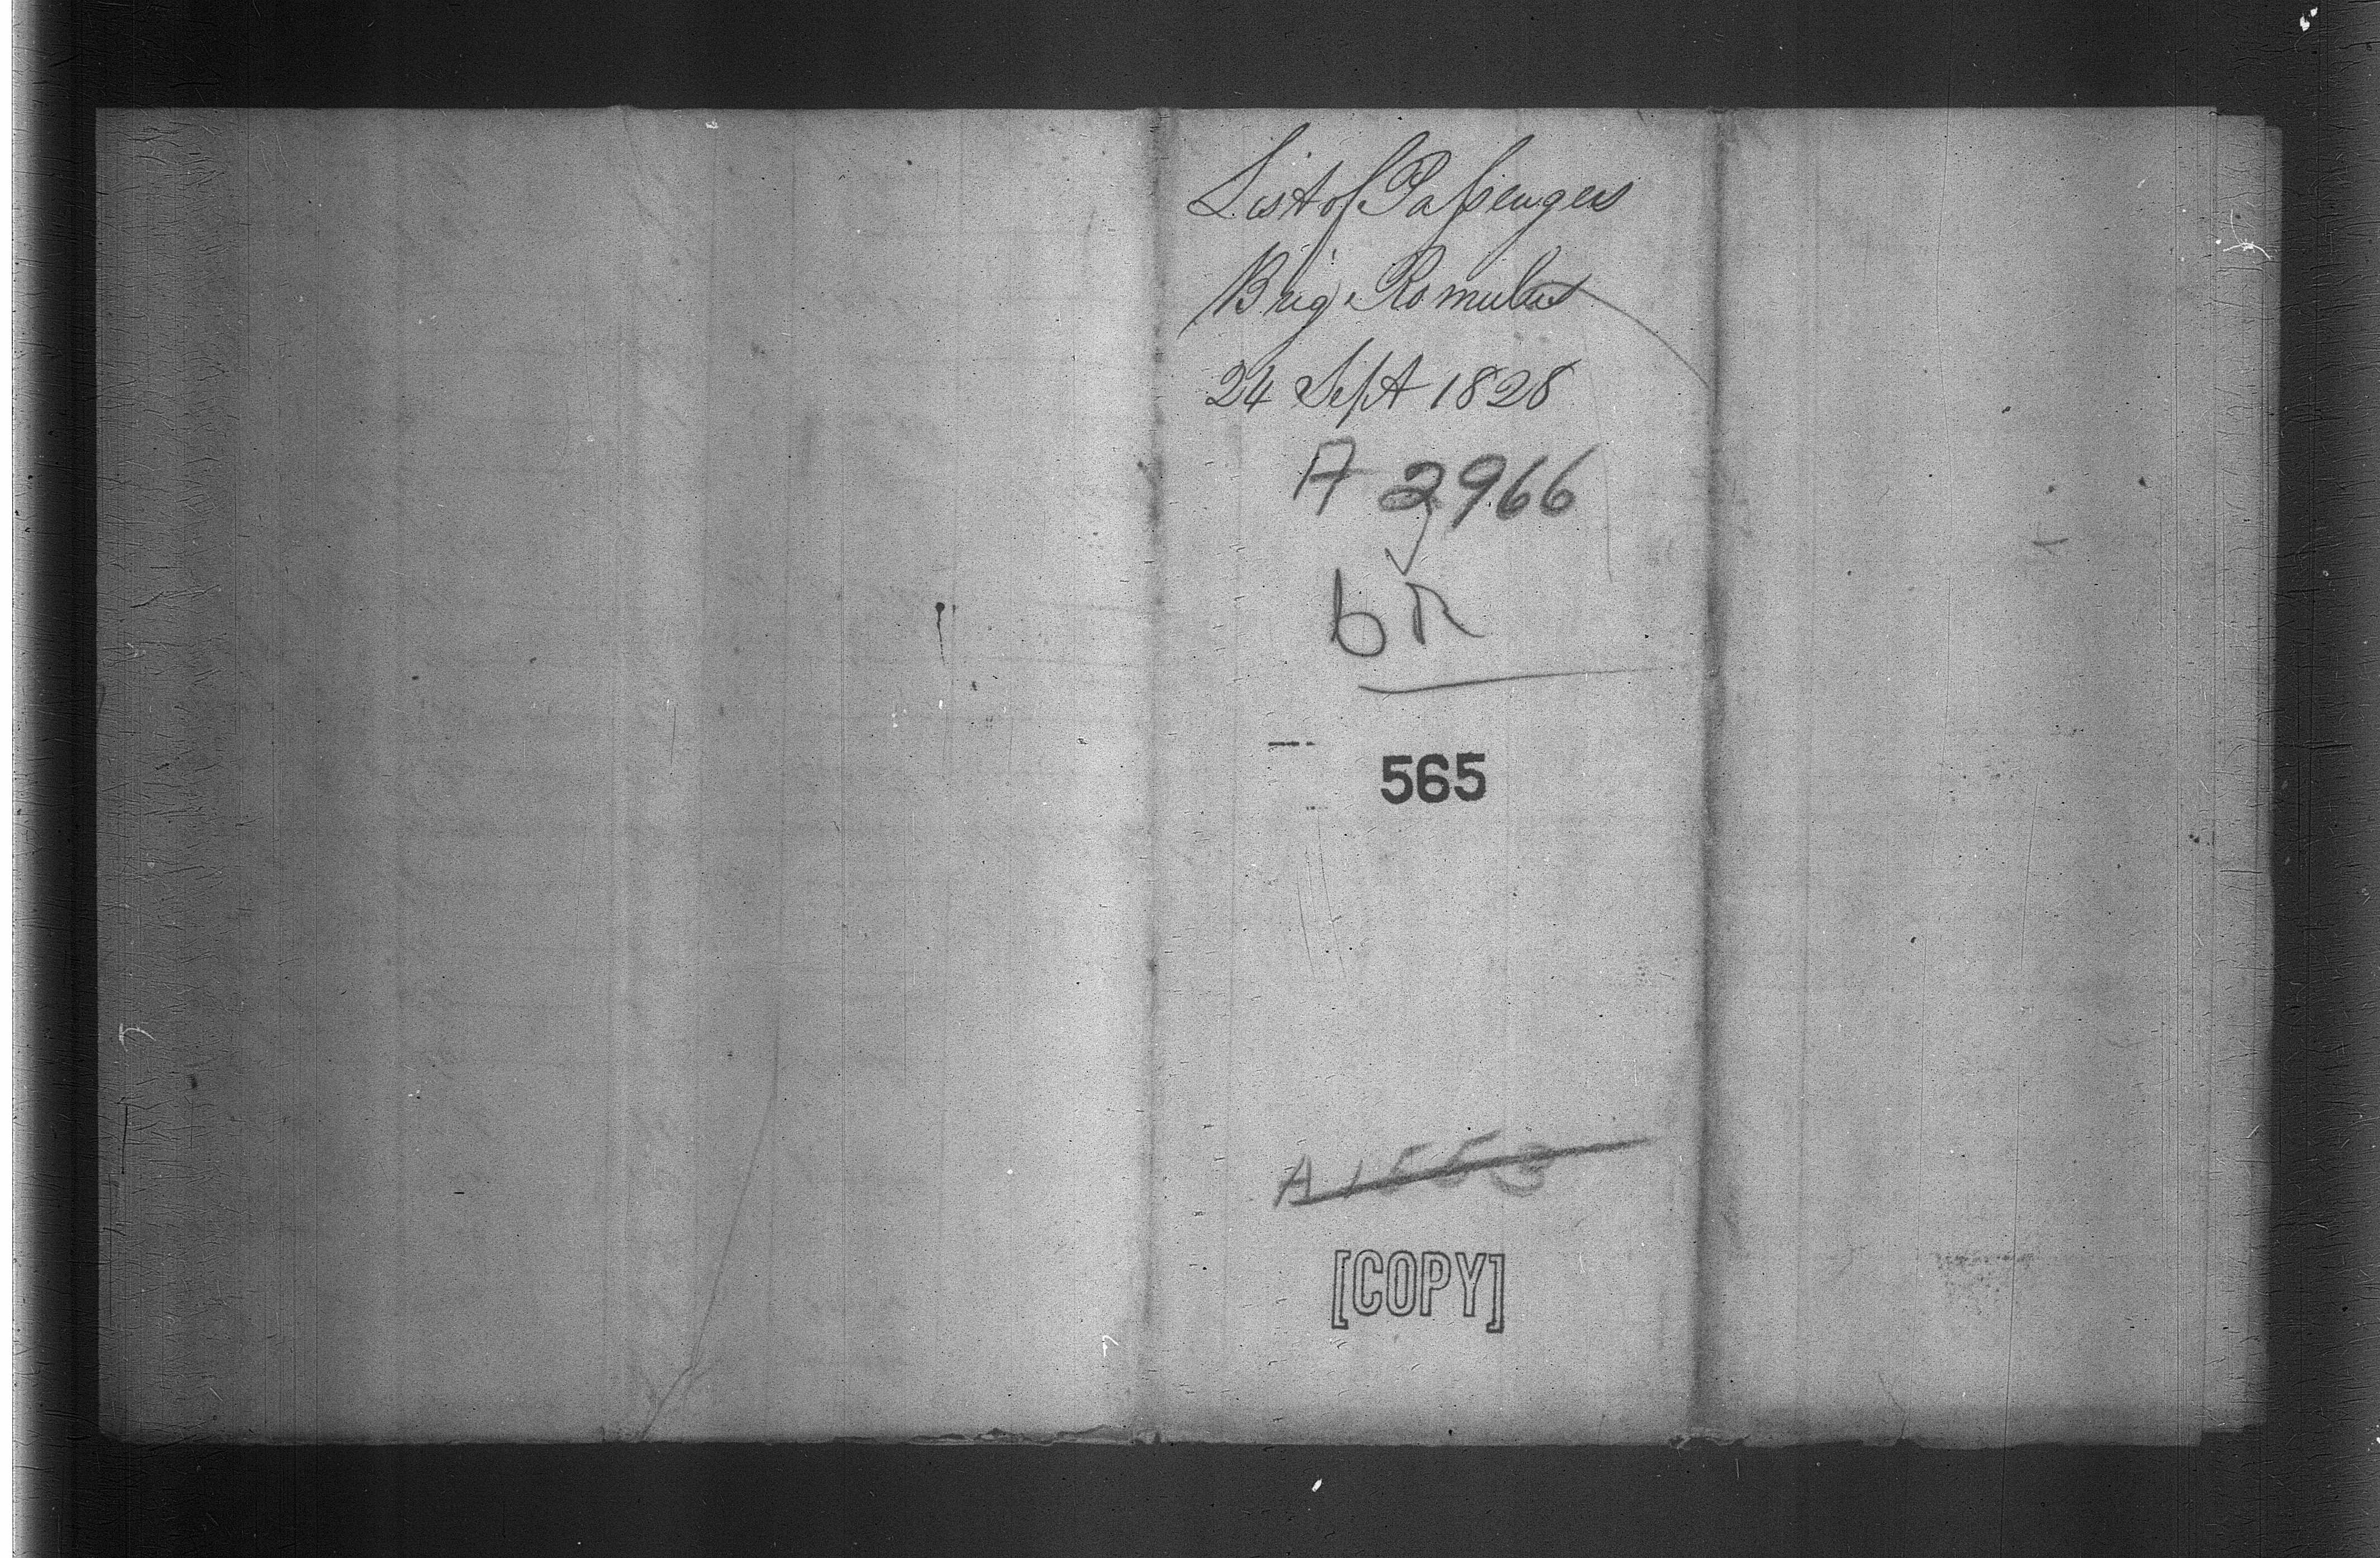 List of Passengers
Brig Romulus
24 Sept 1828
A 2966
bR
565
A 1553
[COPY]